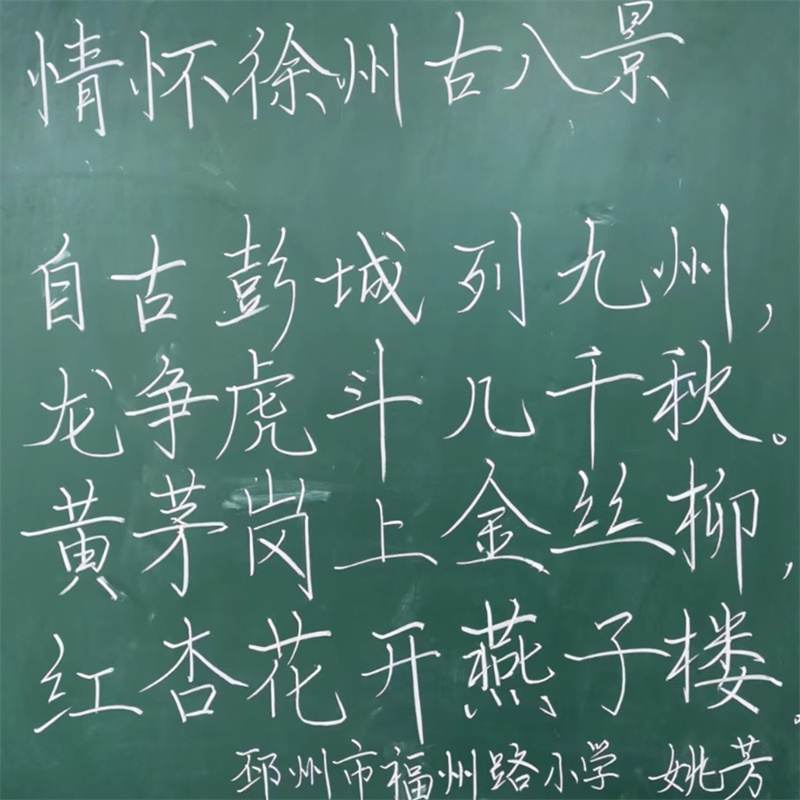 情怀徐州古八景
自古彭城列九州，
龙争虎斗几千秋。
黄茅岗上金丝柳，
红杏花开燕子楼。
邳州市福州路小学 姚芳